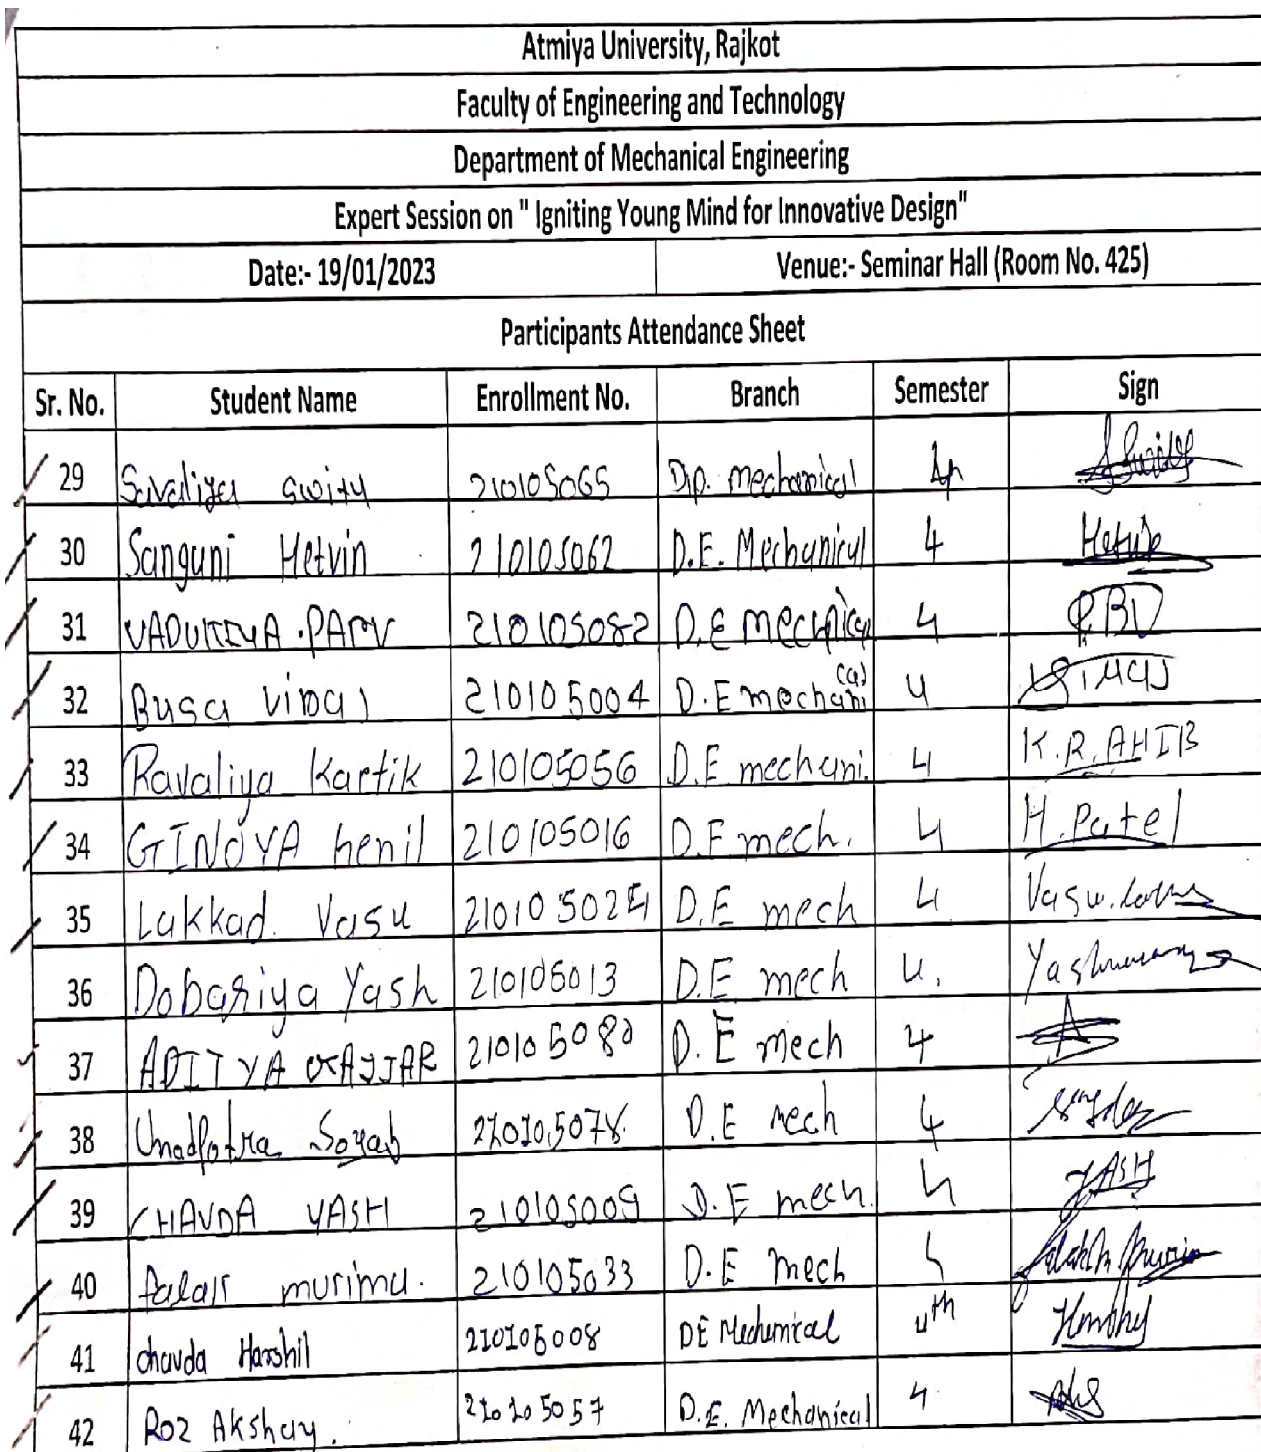 Atmiya University, Rajkot
Faculty of Engineering and Technology
Department of Mechanical Engineering
Expert Session on " Igniting Young Mind for Innovative Design"
Date:- 19/01/2023 Venue:- Seminar Hall (Room No. 425)
Participants Attendance Sheet
Sr. No. Student Name Enrollment No. Branch Semester Sign
29 Savaliya 210105065 Dip. mechanical
30 Sanguni Hetvin 210105062 D.E. Mechanical 4
31 210105082 D.E 4 PBV
32 Busa 210105004 D.E mechanical 4
33 Ravaliya Kartik 210105056 D.E mechani. 4 K.R.
34 GINOYA henil 210105016 D.E mech. 4 H.Patel
35 Lakkad. Vasu D.E mech 4
36 Dobariya Yash 210105013 D.E mech 4.
37 ADITYA 210105080 D.E mech 4
38 210105078. D.E mech 4
39 CHAVDA YASH 210105009 D.E mech. 4 YASH
40 210105033 D.E mech
41 chavda Harshil 210105008 DE Mechanical 4th
42 Roz Akshay. 210105057 D.E. Mechanical 4